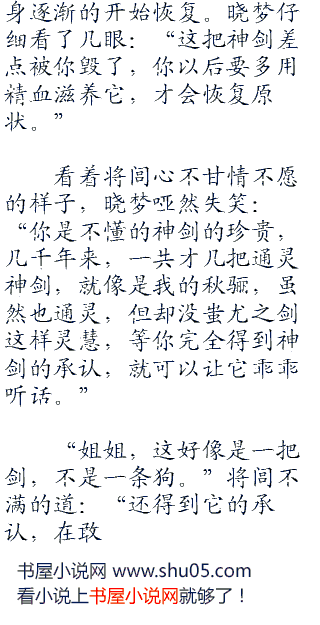 身逐渐的开始恢复。晓梦仔
细看了几眼：“这把神剑差
点被你毁了，你以后要多用
精血滋养它，才会恢复原
状。”
看着将闾心不甘情不愿
的样子，晓梦哑然失笑：
“你是不懂的神剑的珍贵，
几千年来，一共才几把通灵
神剑，就像是我的秋骊，虽
然也通灵，但却没蚩尤之剑
这样灵慧，等你完全得到神
剑的承认，就可以让它乖乖
听话。”
“姐姐，这好像是一把
剑，不是一条狗。”将闾不
满的道：“还得到它的承
认，在敢
书屋小说网 www.shu05.com
看小说上书屋小说网就够了！